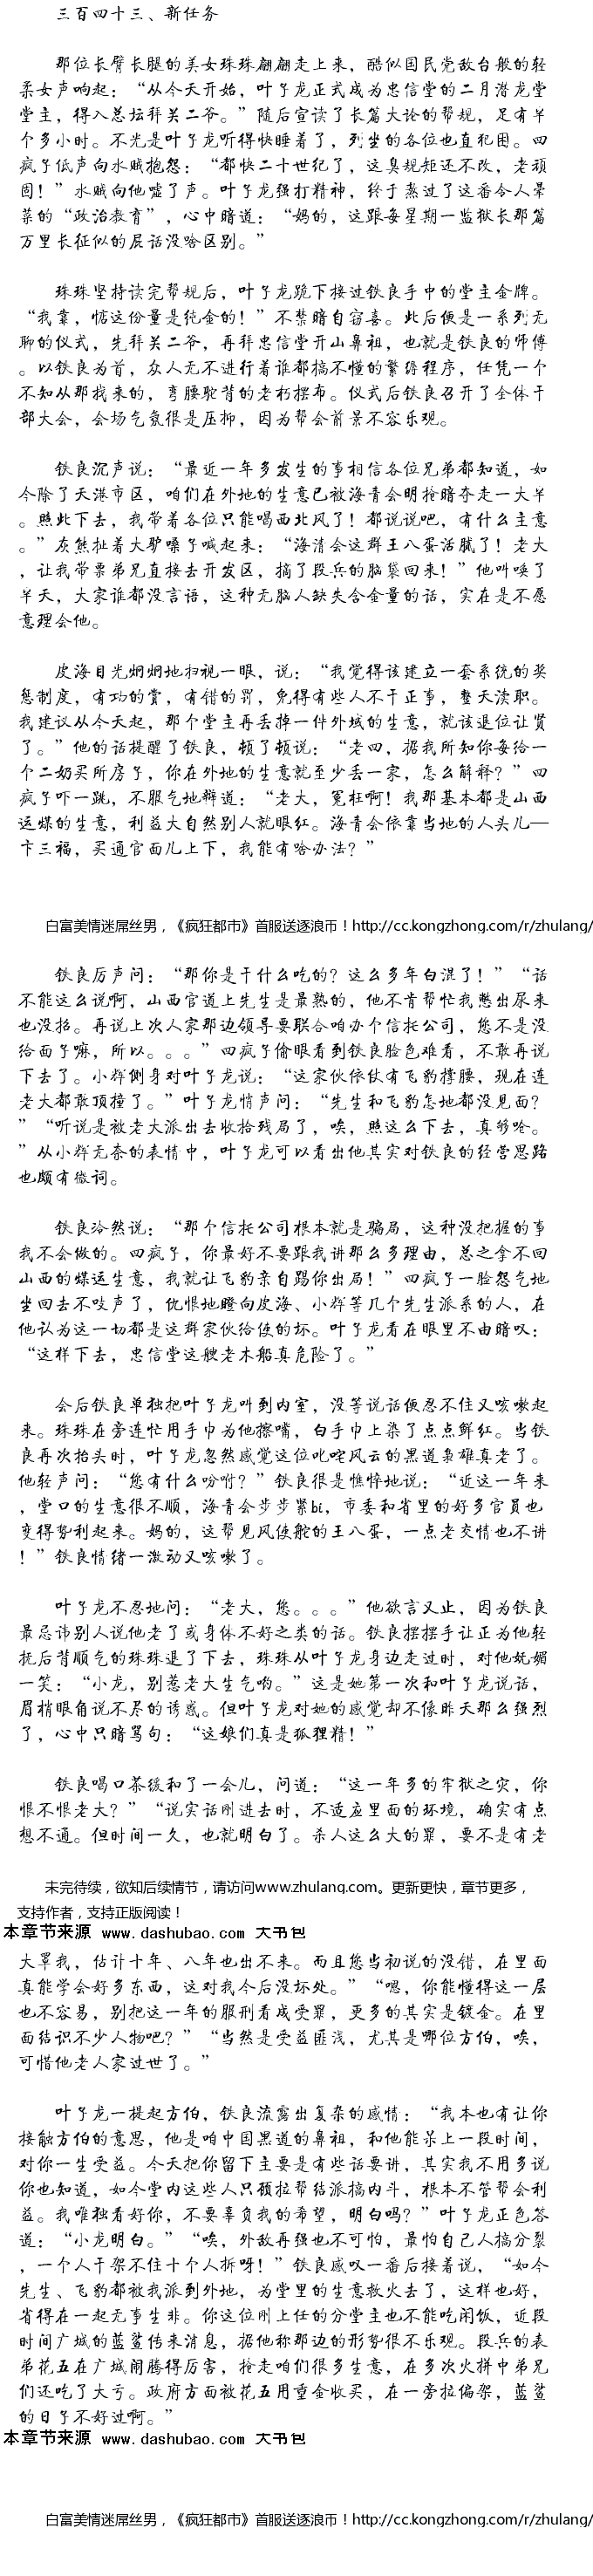 三百四十三、新任务
那位长臂长腿的美女珠珠翩翩走上来，酷似国民党敌台般的轻
柔女声响起：“从今天开始，叶子龙正式成为忠信堂的二月潜龙堂
堂主，得入总坛拜关二爷。”随后宣读了长篇大论的帮规，足有半
个多小时。不光是叶子龙听得快睡着了，列坐的各位也直犯困。四
疯子低声向水贼抱怨：“都快二十世纪了，这臭规矩还不改，老顽
固！”水贼向他嘘了声。叶子龙强打精神，终于熬过了这番令人晕
菜的“政治教育”，心中暗道：“妈的，这跟每星期一监狱长那篇
万里长征似的屁话没啥区别。”
珠珠坚持读完帮规后，叶子龙跪下接过铁良手中的堂主金牌。
“我靠，惦这份量是纯金的！”不禁暗自窃喜。此后便是一系列无
聊的仪式，先拜关二爷，再拜忠信堂开山鼻祖，也就是铁良的师傅
。以铁良为首，众人无不进行着谁都搞不懂的繁缛程序，任凭一个
不知从那找来的，弯腰驼背的老朽摆布。仪式后铁良召开了全体干
部大会，会场气氛很是压抑，因为帮会前景不容乐观。
铁良沉声说：“最近一年多发生的事相信各位兄弟都知道，如
今除了天港市区，咱们在外地的生意已被海青会明抢暗夺走一大半
。照此下去，我带着各位只能喝西北风了！都说说吧，有什么主意
。”灰熊扯着大驴嗓子喊起来：“海清会这群王八蛋活腻了！老大
，让我带票弟兄直接去开发区，摘了段兵的脑袋回来！”他叫唤了
半天，大家谁都没言语，这种无脑人缺失含金量的话，实在是不愿
意理会他。
皮海目光炯炯地扫视一眼，说：“我觉得该建立一套系统的奖
惩制度，有功的赏，有错的罚，免得有些人不干正事，整天渎职。
我建议从今天起，那个堂主再丢掉一件外域的生意，就该退位让贤
了。”他的话提醒了铁良，顿了顿说：“老四，据我所知你每给一
个二奶买所房子，你在外地的生意就至少丢一家，怎么解释？”四
疯子吓一跳，不服气地辩道：“老大，冤枉啊！我那基本都是山西
运煤的生意，利益大自然别人就眼红。海青会依靠当地的人头儿—
卞三福，买通官面儿上下，我能有啥办法？”
白富美情迷屌丝男，《疯狂都市》首服送逐浪币！http://cc.kongzhong.com/r/zhulang/
铁良厉声问：“那你是干什么吃的？这么多年白混了！”“话
不能这么说啊，山西官道上先生是最熟的，他不肯帮忙我憋出尿来
也没招。再说上次人家那边领导要联合咱办个信托公司，您不是没
给面子嘛，所以。。。”四疯子偷眼看到铁良脸色难看，不敢再说
下去了。小辉侧身对叶子龙说：“这家伙依仗有飞豹撑腰，现在连
老大都敢顶撞了。”叶子龙悄声问：“先生和飞豹怎地都没见面？
”“听说是被老大派出去收拾残局了，唉，照这么下去，真够呛。
”从小辉无奈的表情中，叶子龙可以看出他其实对铁良的经营思路
也颇有微词。
铁良冷然说：“那个信托公司根本就是骗局，这种没把握的事
我不会做的。四疯子，你最好不要跟我讲那么多理由，总之拿不回
山西的煤运生意，我就让飞豹亲自踢你出局！”四疯子一脸怨气地
坐回去不吱声了，仇恨地瞪向皮海、小辉等几个先生派系的人，在
他认为这一切都是这群家伙给使的坏。叶子龙看在眼里不由暗叹：
“这样下去，忠信堂这艘老木船真危险了。”
会后铁良单独把叶子龙叫到内室，没等说话便忍不住又咳嗽起
来。珠珠在旁连忙用手巾为他擦嘴，白手巾上染了点点鲜红。当铁
良再次抬头时，叶子龙忽然感觉这位叱咤风云的黑道枭雄真老了。
他轻声问：“您有什么吩咐？”铁良很是憔悴地说：“近这一年来
，堂口的生意很不顺，海青会步步紧bi，市委和省里的好多官员也
变得势利起来。妈的，这帮见风使舵的王八蛋，一点老交情也不讲
！”铁良情绪一激动又咳嗽了。
叶子龙不忍地问：“老大，您。。。”他欲言又止，因为铁良
最忌讳别人说他老了或身体不好之类的话。铁良摆摆手让正为他轻
抚后背顺气的珠珠退了下去，珠珠从叶子龙身边走过时，对他妩媚
一笑：“小龙，别惹老大生气哟。”这是她第一次和叶子龙说话，
眉梢眼角说不尽的诱惑。但叶子龙对她的感觉却不像昨天那么强烈
了，心中只暗骂句：“这娘们真是狐狸精！”
铁良喝口茶缓和了一会儿，问道：“这一年多的牢狱之灾，你
恨不恨老大？”“说实话刚进去时，不适应里面的环境，确实有点
想不通。但时间一久，也就明白了。杀人这么大的罪，要不是有老
未完待续，欲知后续情节，请访问www.zhulang.com。更新更快，章节更多，
支持作者，支持正版阅读！
本章节来源 www.dashubao.com 大书包
大罩我，估计十年、八年也出不来。而且您当初说的没错，在里面
真能学会好多东西，这对我今后没坏处。”“嗯，你能懂得这一层
也不容易，别把这一年的服刑看成受罪，更多的其实是镀金。在里
面结识不少人物吧？”“当然是受益匪浅，尤其是哪位方伯，唉，
可惜他老人家过世了。”
叶子龙一提起方伯，铁良流露出复杂的感情：“我本也有让你
接触方伯的意思，他是咱中国黑道的鼻祖，和他能呆上一段时间，
对你一生受益。今天把你留下主要是有些话要讲，其实我不用多说
你也知道，如今堂内这些人只顾拉帮结派搞内斗，根本不管帮会利
益。我唯独看好你，不要辜负我的希望，明白吗？”叶子龙正色答
道：“小龙明白。”“唉，外敌再强也不可怕，最怕自己人搞分裂
，一个人干架不住十个人拆呀！”铁良感叹一番后接着说，“如今
先生、飞豹都被我派到外地，为堂里的生意救火去了，这样也好，
省得在一起无事生非。你这位刚上任的分堂主也不能吃闲饭，近段
时间广城的蓝鲨传来消息，据他称那边的形势很不乐观。段兵的表
弟花五在广城闹腾得厉害，抢走咱们很多生意，在多次火拼中弟兄
们还吃了大亏。政府方面被花五用重金收买，在一旁拉偏架，蓝鲨
的日子不好过啊。”
本章节来源 www.dashubao.com 大书包
白富美情迷屌丝男，《疯狂都市》首服送逐浪币！http://cc.kongzhong.com/r/zhulang/